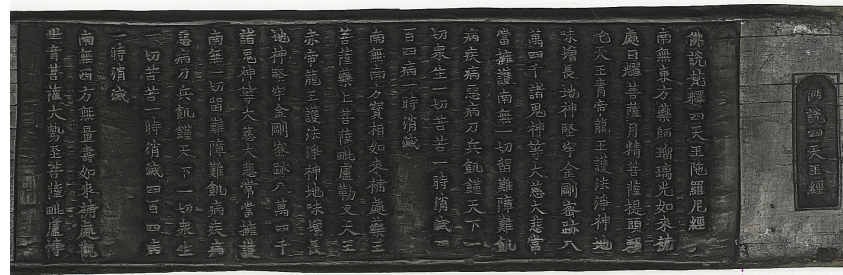 佛說四天王經
佛說姑釋四天王陁羅尼經
南無東方藥師瑠璃光如來補
處日耀菩薩月精菩薩提頭賴
吒天王青帝龍王護法淨神地
味增長地神堅牢金剛密跡八
萬四千諸鬼神等大慈大悲常
當擁護南無一切留難障難飢
病疾病惡病刀兵飢饉天下一
切衆生一切苦苦一時消滅四
百四病一時消滅
南無南方寶相如來補處藥王
菩薩藥上菩薩毗盧勒叉天王
赤帝龍王護法淨神地味增長
地神堅牢金剛密跡八萬四千
諸鬼神等大慈大悲常當擁護
南無一切留難障難飢病疾病
惡病刀兵飢饉天下一切衆生
一切苦苦一時消滅四百四病
一時消滅
南無西方無量壽如來補處觀
世音菩薩大勢至菩薩毗盧博